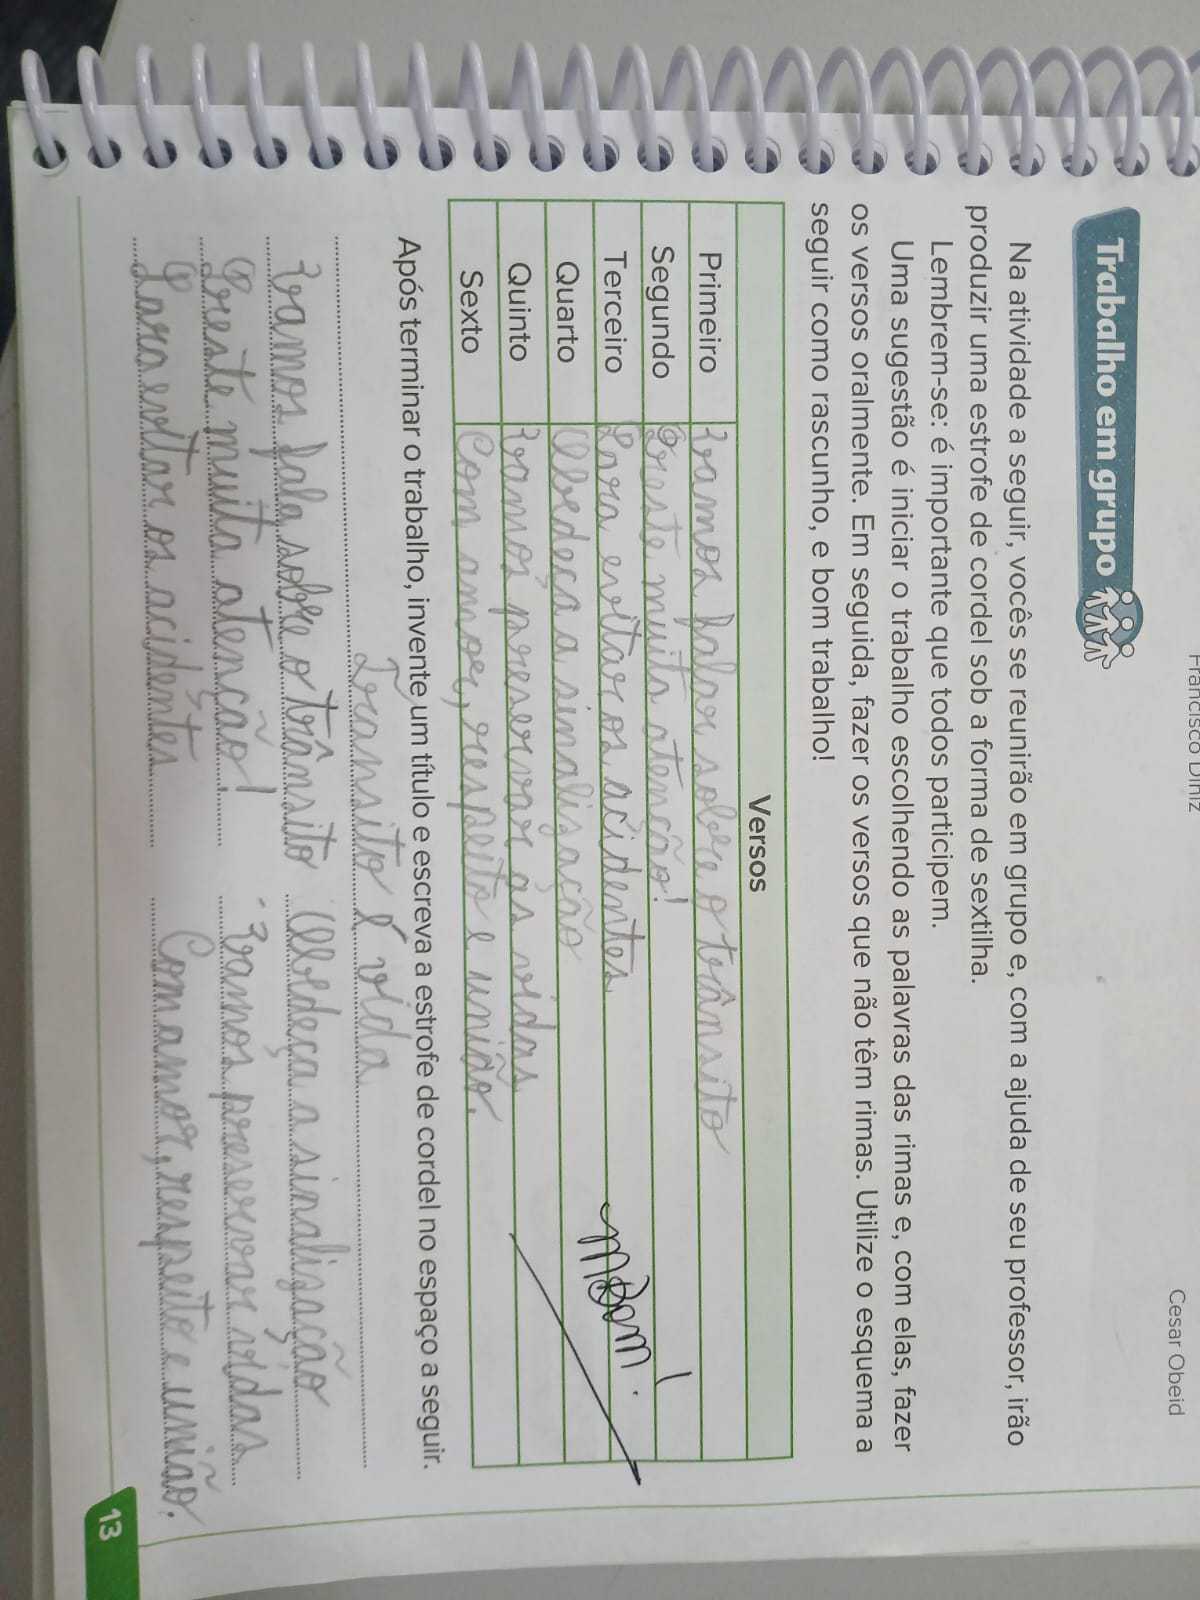 Francisco Diniz
Cesar Obeid
Trabalho em grupo
Na atividade a seguir, vocês se reunirão em grupo e, com a ajuda de seu professor, irão
produzir uma estrofe de cordel sob a forma de sextilha.
Lembrem-se: é importante que todos participem.
Uma sugestão é iniciar o trabalho escolhendo as palavras das rimas e, com elas, fazer
os versos oralmente. Em seguida, fazer os versos que não têm rimas. Utilize o esquema a
seguir como rascunho, e bom trabalho!
Versos
Primeiro Vamos falar sobre o trânsito
Segundo Preste muita atenção!
Terceiro Para evitar os acidentes
Quarto Obedeça a sinalização
Quinto Vamos preservar as vidas
Sexto Com amor, respeito e união.
Após terminar o trabalho, invente um título e escreva a estrofe de cordel no espaço a seguir.
Trânsito é vida
Vamos fala sobre o trânsito
Preste muita atenção!
Para evitar os acidentes
Obedeça a sinalização
Vamos preservar vidas
Com amor, respeito e união.
13